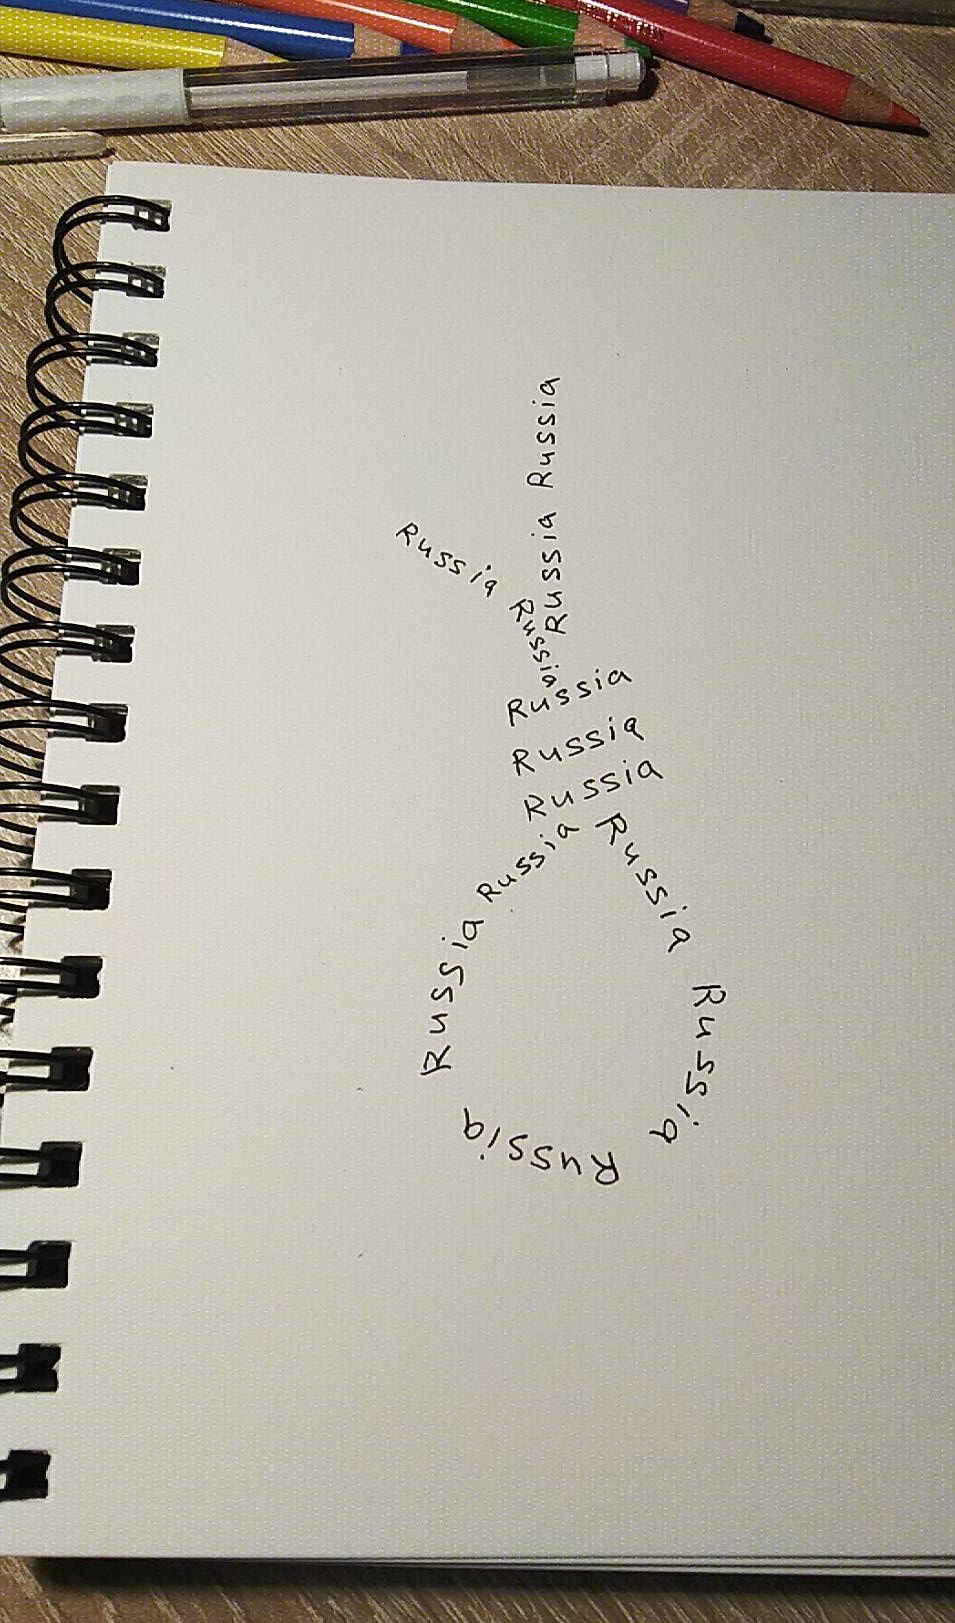 Russia Russia
Russia Russia
Russia
Russia
Russia
Russia Russia
Russia Russia
Russia